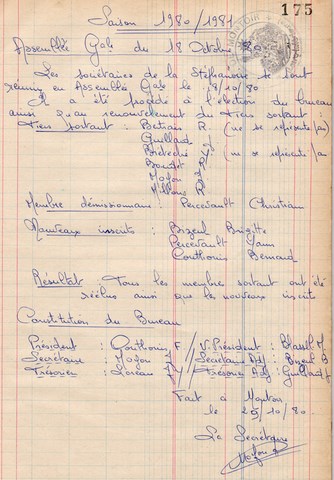 175
Saison 1980/1981
Assemblée Gale du 18 Octobre 80
Les sociétaires de la Stéphanoise se sont
réunis en Assemblée Gale le 18/10/80
Il a été procédé à l'élection du bureau
ainsi qu'au renouvellement du tiers sortant :
Tiers sortant : R. (ne se représente pas)
Guillard
(ne se représente pas
Bourdet
Moyon
R
Membre démissionnaire : Percevault Christian
Nouveaux inscrits : Bizeul Brigitte
Percevault Yann
Couthouis Bernard
Résultat Tous les membres sortant ont été
réélus ainsi que les nouveaux inscrits
Constitution du Bureau
Président : Gouthouis F // V. Président : M
Secrétaire : Moyon J // Secrétaire Adj : Bizeul B
Trésorier : Loreau // Trésorier Adj : Guillard
Fait à
le 25/10/80
Le Secrétaire
Moyon